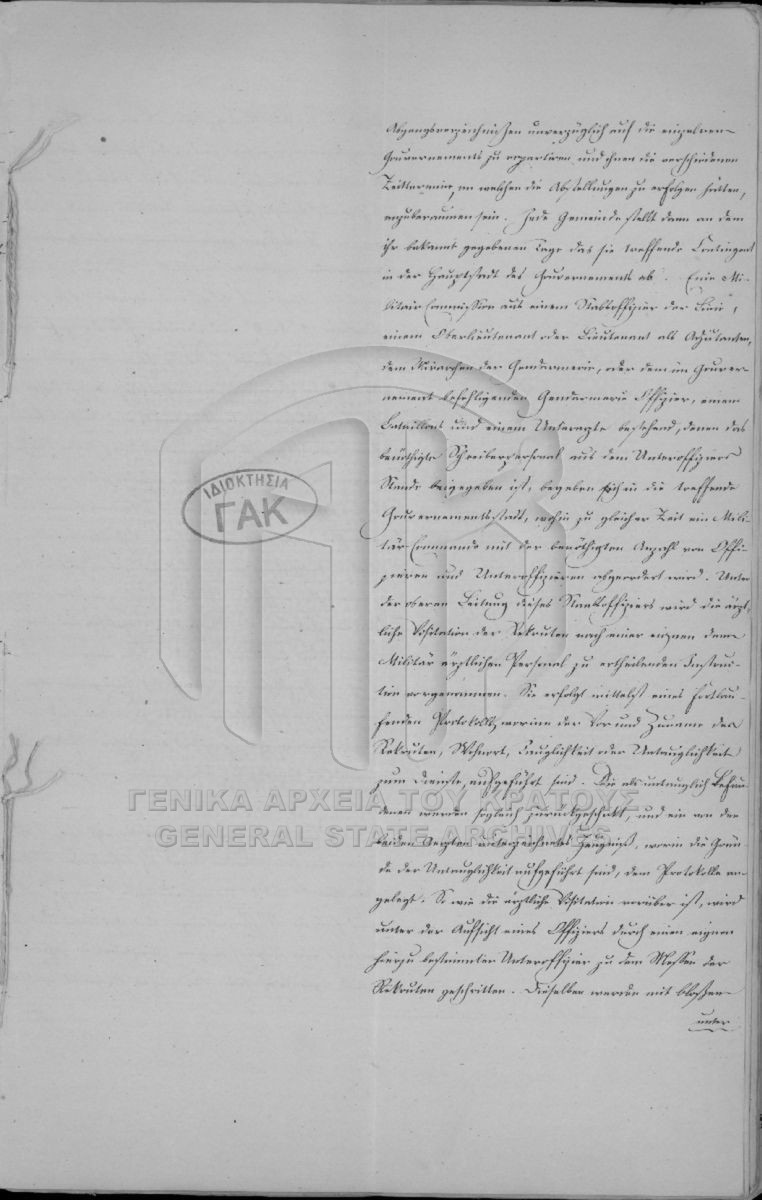 Abgangsverzeichnissen unverzüglich auf die einzelnen
Gouvernements zu repartiren und ihnen die verschiedenen
Zeittermine, an welchen die Abstellungen zu erfolgen hätten,
anzuberaumen sein. Jede Gemeinde stellt dann an dem
ihr bekannt gegebenen Tage das sie treffende Contingent
in der Hauptstadt des Gouvernements ab. Eine Mi-
litair Commission aus einem Stabsoffizier der Linie,
einem Oberlieutenant oder Lieutenant als Adjutanten,
dem Mirarchen der Gendarmerie, oder dem im Gouver-
nement befehligenden Gendarmerie Offizier, einem
Bataillons und einem Unterarzte bestehend, denen das
benöthigte Schreiberpersonal aus dem Unteroffiziers
Stande beigegeben ist, begeben sich in die treffende
Gouvernementsstadt, wohin zu gleicher Zeit ein Mili-
tär-Commando mit der benöthigten Anzahl von Offi-
zieren und Unteroffizieren abgeordert wird. Unter
der oberen Leitung dieses Stabsoffiziers wird die ärzt-
liche Visitation der Rekruten nach einer eignen dem
Militär ärztlichen Personal zu ertheilenden Instruc-
tion vorgenommen. Sie erfolgt mittelst eines fortlau-
fenden Protokolls, worinn der Vor und Zuname des
Rekruten, Wohnort, Tauglichkeit oder Untauglichkeit
zum Dienste, aufgeführt sind. Die als untauglich Befun-
denen werden sogleich zurückgeschikt, und ein von den
beiden Aerzten unterzeichnetes Zeugniß, worin die Grün-
de der Untauglichkeit aufgeführt sind, dem Protokolle an-
gelegt. So wie die ärztliche Visitation vorüber ist, wird
unter der Aufsicht eines Offiziers durch einen eignen
hierzu bestimmten Unteroffizier zu dem Messen der
Rekruten geschritten. Dieselben werden mit bloßen
unter
ΙΔΙΟΚΤΗΣΙΑ
ΓΑΚ
ΓΕΝΙΚΑ ΑΡΧΕΙΑ ΤΟΥ ΚΡΑΤΟΥΣ
GENERAL STATE ARCHIVES